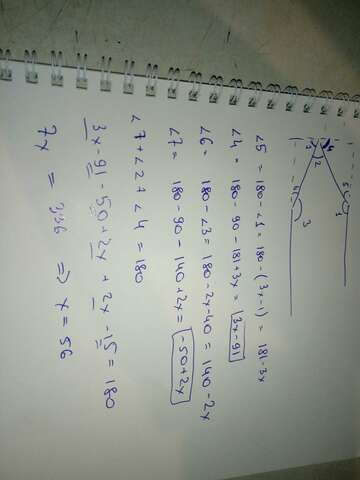 ∠5 = 180 - ∠1 = 180 - (3x-1) = 181-3x
∠4 = 180 - 90 - 181+3x = 3x-91
∠6 = 180 - ∠3 = 180-2x-40 = 140-2x
∠7 = 180-90-140+2x = -50+2x
∠7+∠2+∠4 = 180
3x-91-50+2x+2x-15 = 180
7x = 336 ⇒ x = 56